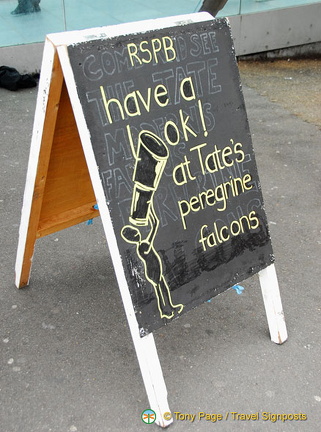 RSPB
have a
look!
at Tate's
peregrine
falcons
COME AND SEE
THE TATE
© Tony Page / Travel Signposts